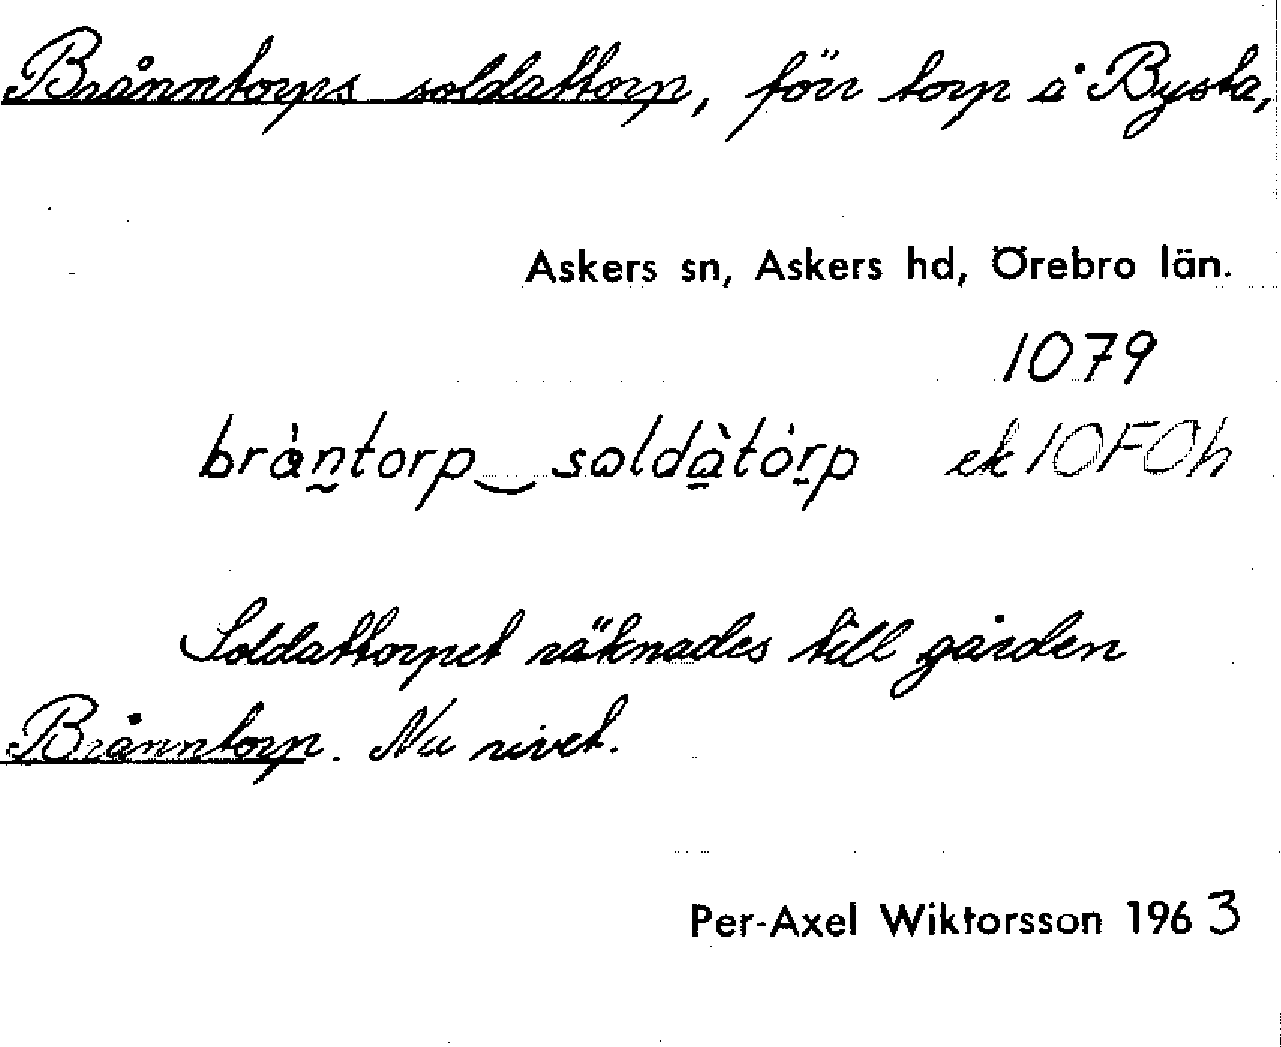 Brånntorps soldattorp, förr torp å Bysta,
Askers sn, Askers hd, Örebro län.
1079
bràn̰torp‿soldà̱tór̰p ek 10F0h
Soldattorpet räknades till gården
Brånntorp. Nu rivet.
Per-Axel Wiktorsson 1963